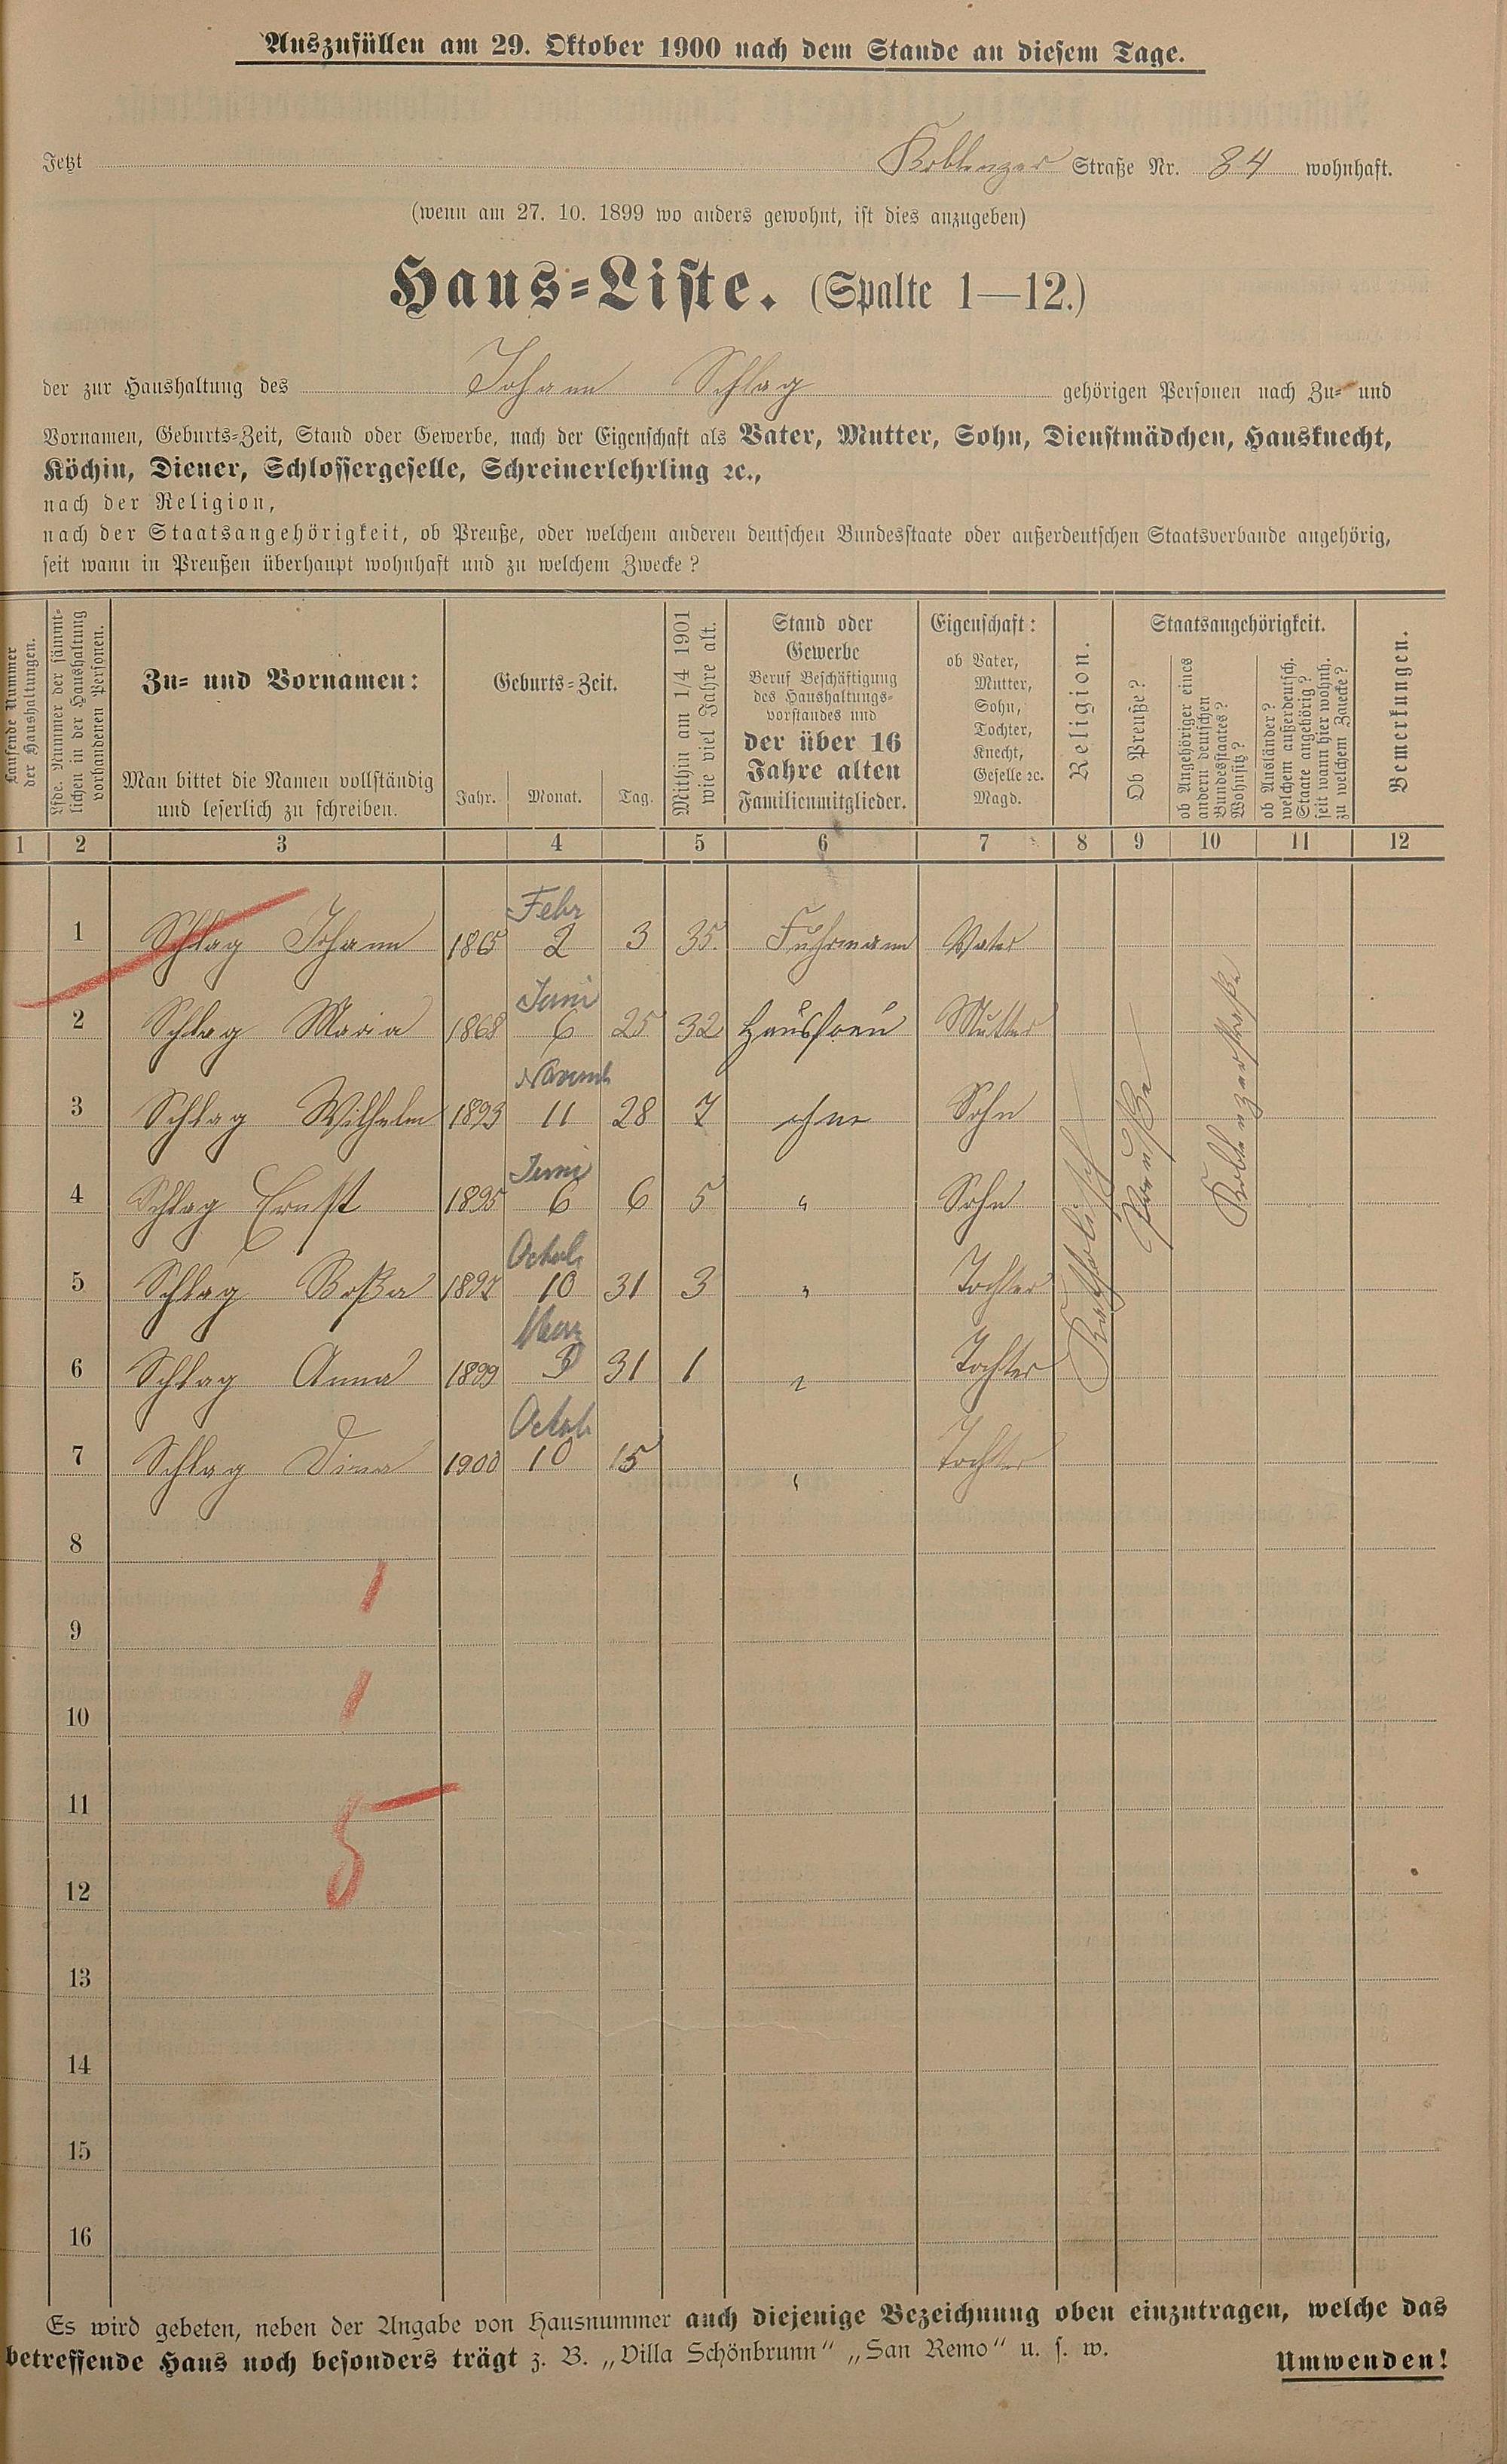 Auszufüllen am 29. Oktober 1900 nach dem Stande an diesem Tage.
Jetzt Koblenzer Straße Nr. 84 wohnhaft.
(wenn am 27. 10. 1899 wo anders gewohnt, ist dies anzugeben)
Haus-Liste. (Spalte 1—12.)
der zur Haushaltung des Johann Schlag gehörigen Personen nach Zu- und
Vornamen, Geburts-Zeit, Stand oder Gewerbe, nach der Eigenschaft als Vater, Mutter, Sohn, Dienstmädchen, Hausknecht,
Köchin, Diener, Schlossergeselle, Schreinerlehrling ꝛc.,
nach der Religion,
nach der Staatsangehörigkeit, ob Preuße, oder welchem anderen deutschen Bundesstaate oder außerdeutschen Staatsverbande angehörig,
seit wann in Preußen überhaupt wohnhaft und zu welchem Zwecke?
Laufende Nummer
der Haushaltungen.
Lfde. Nummer der sämmt-
lichen in der Haushaltung
vorhandenen Personen.
Zu- und Vornamen:
Man bittet die Namen vollständig
und leserlich zu schreiben.
Geburts-Zeit.
Jahr. Monat. Tag.
Mithin am 1/4 1901
wie viel Jahre alt.
Stand oder
Gewerbe
Beruf Beschäftigung
des Haushaltungs-
vorstandes und
der über 16
Jahre alten
Familienmitglieder.
Eigenschaft:
ob Vater,
Mutter,
Sohn,
Tochter,
Knecht,
Geselle ꝛc.
Magd.
Religion.
Staatsangehörigkeit.
Ob Preuße?
ob Angehöriger eines
andern deutschen
Bundesstaates?
Wohnsitz?
ob Ausländer?
welchem außerdeutsch.
Staate angehörig?
seit wann hier wohnh.
zu welchem Zwecke?
Bemerkungen.
1 2 3 4 5 6 7 8 9 10 11 12
Febr
1 Schlag Johann 1865 2 3 35. Fuhrmann Vater
Juni
2 Schlag Maria 1868 6 25 32 Hausfrau Mutter
Novemb
3 Schlag Wilhelm 1893 11 28 7 ohne Sohn
Juni
4 Schlag Ernst 1895 6 6 5 " Sohn
Octob
5 Schlag Roßa 1897 10 31 3 " Tochter
März
6 Schlag Anna 1899 3 31 1 " Tochter
Octob
7 Schlag Dina 1900 10 15 " Tochter
Katholisch
Preuße
Koblenzerstraße
8
9
10
11
12
13
14
15
16
1
1
5
Es wird gebeten, neben der Angabe von Hausnummer auch diejenige Bezeichnung oben einzutragen, welche das
betreffende Haus noch besonders trägt z. B. „Villa Schönbrunn“ „San Remo“ u. s. w.
Umwenden!